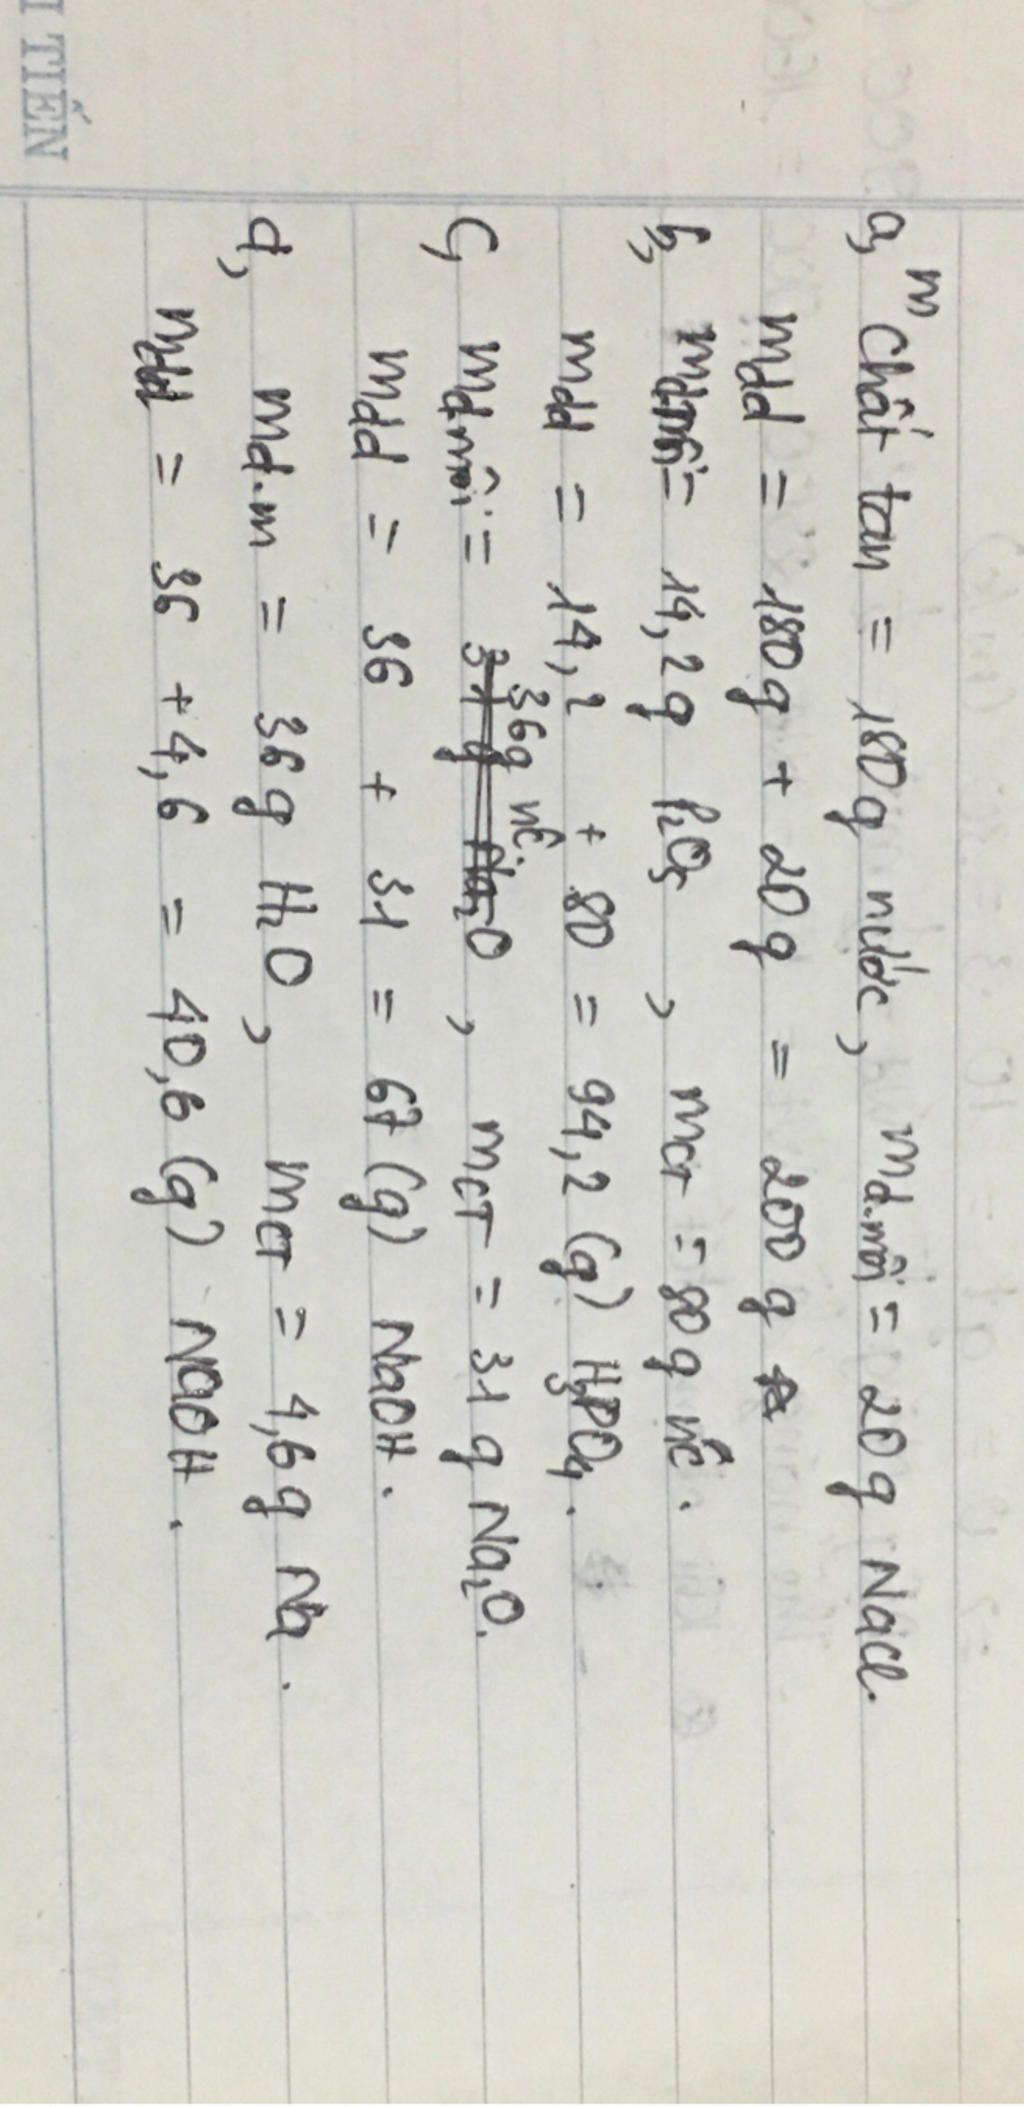 I TIẾN
a, m chất tan = 180g nước, md.môi = 20g Nacl.
mdd = 180g + 20g = 200g
b, mdmôi = 14,2g P₂O₅, mct = 80g nc.
mdd = 14,2 + 80 = 94,2 (g) H₃PO₄.
c, mdmôi = 36g nc., mct = 31g Na₂O.
mdd = 36 + 31 = 67 (g) NaOH.
d, md.m = 36g H₂O, mct = 4,6g Na.
mdd = 36 + 4,6 = 40,6 (g) NaOH.